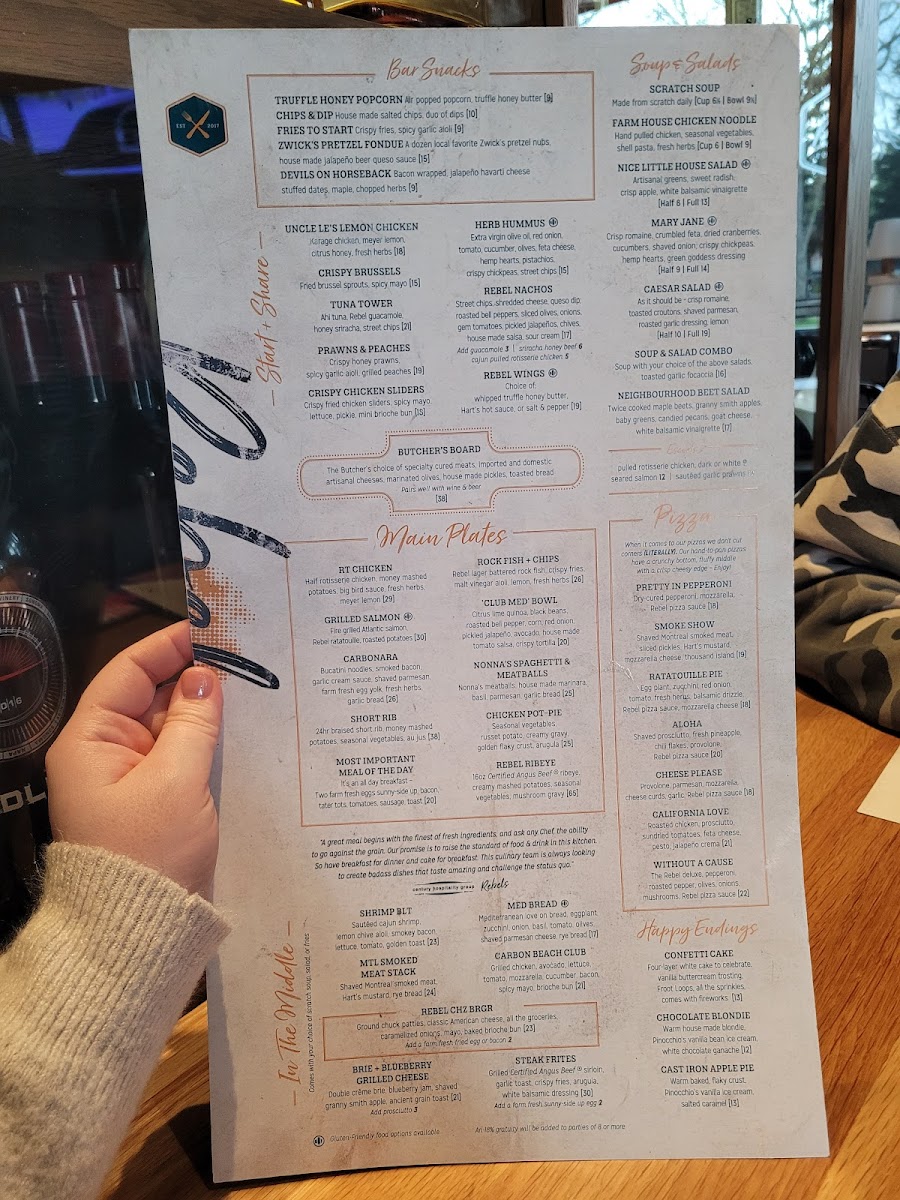 EST 2017
Bar Snacks
TRUFFLE HONEY POPCORN Air popped popcorn, truffle honey butter [9]
CHIPS & DIP House made salted chips, duo of dips [10]
FRIES TO START Crispy fries, spicy garlic aioli [9]
ZWICK'S PRETZEL FONDUE A dozen local favorite Zwick's pretzel nubs,
house made jalapeño beer queso sauce [15]
DEVILS ON HORSEBACK Bacon wrapped, jalapeño havarti cheese
stuffed dates, maple, chopped herbs [9]
Start + Share
UNCLE LE'S LEMON CHICKEN
Karage chicken, meyer lemon,
citrus honey, fresh herbs [18]
CRISPY BRUSSELS
Fried brussel sprouts, spicy mayo [15]
TUNA TOWER
Ahi tuna, Rebel guacamole,
honey sriracha, street chips [21]
PRAWNS & PEACHES
Crispy honey prawns,
spicy garlic aioli, grilled peaches [19]
CRISPY CHICKEN SLIDERS
Crispy fried chicken sliders, spicy mayo,
lettuce, pickle, mini brioche bun [15]
HERB HUMMUS
Extra virgin olive oil, red onion,
tomato, cucumber, olives, feta cheese,
hemp hearts, pistachios,
crispy chickpeas, street chips [15]
REBEL NACHOS
Street chips, shredded cheese, queso dip
roasted bell peppers, sliced olives, onions,
gem tomatoes, pickled jalapeños, chives,
house made salsa, sour cream [17]
Add guacamole 3 | sriracha honey beef 6
cajun pulled rotisserie chicken 5
REBEL WINGS
Choice of:
whipped truffle honey butter,
Hart's hot sauce, or salt & pepper [19]
BUTCHER'S BOARD
The Butcher's choice of specialty cured meats, imported and domestic
artisanal cheeses, marinated olives, house made pickles, toasted bread
Pairs well with wine & beer
[38]
Soup & Salads
SCRATCH SOUP
Made from scratch daily [Cup 6½ | Bowl 9½]
FARM HOUSE CHICKEN NOODLE
Hand pulled chicken, seasonal vegetables,
shell pasta, fresh herbs [Cup 6 | Bowl 9]
NICE LITTLE HOUSE SALAD
Artisanal greens, sweet radish,
crisp apple, white balsamic vinaigrette
[Half 6 | Full 13]
MARY JANE
Crisp romaine, crumbled feta, dried cranberries,
cucumbers, shaved onion, crispy chickpeas,
hemp hearts, green goddess dressing
[Half 9 | Full 14]
CAESAR SALAD
As it should be - crisp romaine,
toasted croutons, shaved parmesan,
roasted garlic dressing, lemon
[Half 10 | Full 19]
SOUP & SALAD COMBO
Soup with your choice of the above salads,
toasted garlic focaccia [16]
NEIGHBOURHOOD BEET SALAD
Twice cooked maple beets, granny smith apples,
baby greens, candied pecans, goat cheese,
white balsamic vinaigrette [17]
pulled rotisserie chicken, dark or white 9
seared salmon 12 | sautéed garlic prawns
Main Plates
RT CHICKEN
Half rotisserie chicken, money mashed
potatoes, big bird sauce, fresh herbs,
meyer lemon [29]
GRILLED SALMON
Fire grilled Atlantic salmon,
Rebel ratatouille, roasted potatoes [30]
CARBONARA
Bucatini noodles, smoked bacon,
garlic cream sauce, shaved parmesan,
farm fresh egg yolk, fresh herbs,
garlic bread [26]
SHORT RIB
24hr braised short rib, money mashed
potatoes, seasonal vegetables, au jus [38]
MOST IMPORTANT
MEAL OF THE DAY
It's an all day breakfast -
Two farm fresh eggs sunny-side up, bacon,
tater tots, tomatoes, sausage, toast [20]
ROCK FISH + CHIPS
Rebel lager battered rock fish, crispy fries,
malt vinegar aioli, lemon, fresh herbs [26]
'CLUB MED' BOWL
Citrus lime quinoa, black beans,
roasted bell pepper, corn, red onion,
pickled jalapeño, avocado, house made
tomato salsa, crispy tortilla [20]
NONNA'S SPAGHETTI &
MEATBALLS
Nonna's meatballs, house made marinara,
basil, parmesan, garlic bread [25]
CHICKEN POT-PIE
Seasonal vegetables,
russet potato, creamy gravy,
golden flaky crust, arugula [25]
REBEL RIBEYE
16oz Certified Angus Beef ® ribeye,
creamy mashed potatoes, seasonal
vegetables, mushroom gravy [65]
Pizza
When it comes to our pizzas we don't cut
corners (LITERALLY). Our hand-tan pizzas
have a crunchy bottom, fluffy middle
with a crisp cheesy edge - Enjoy!
PRETTY IN PEPPERONI
Dry-cured pepperoni, mozzarella,
Rebel pizza sauce [18]
SMOKE SHOW
Shaved Montreal smoked meat,
sliced pickles, Hart's mustard,
mozzarella cheese, thousand island [19]
RATATOUILLE PIE
Egg plant, zucchini, red onion,
tomato, fresh herbs, balsamic drizzle,
Rebel pizza sauce, mozzarella cheese [18]
ALOHA
Shaved prosciutto, fresh pineapple,
chili flakes, provolone,
Rebel pizza sauce [20]
CHEESE PLEASE
Provolone, parmesan, mozzarella,
cheese curds, garlic, Rebel pizza sauce [18]
CALIFORNIA LOVE
Roasted chicken, prosciutto,
sundried tomatoes, feta cheese,
pesto, jalapeño crema [21]
WITHOUT A CAUSE
The Rebel deluxe, pepperoni,
roasted pepper, olives, onions,
mushrooms, Rebel pizza sauce [22]
"A great meal begins with the finest of fresh ingredients, and ask any Chef, the ability
to go against the grain. Our promise is to raise the standard of food & drink in this kitchen.
So have breakfast for dinner and cake for breakfast. This culinary team is always looking
to create badass dishes that taste amazing and challenge the status quo."
century hospitality group Rebels
In The Middle
Comes with your choice of scratch soup, salad or fries
SHRIMP BLT
Sautéed cajun shrimp,
lemon chive aioli, smokey bacon,
lettuce, tomato, golden toast [23]
MTL SMOKED
MEAT STACK
Shaved Montreal smoked meat,
Hart's mustard, rye bread [24]
MED BREAD
Mediterranean love on bread, eggplant,
zucchini, onion, basil, tomato, olives,
shaved parmesan cheese, rye bread [17]
CARBON BEACH CLUB
Grilled chicken, avocado, lettuce,
tomato, mozzarella, cucumber, bacon,
spicy mayo, brioche bun [21]
REBEL CHZ BRGR
Ground chuck patties, classic American cheese, all the groceries,
caramelized onions, mayo, baked brioche bun [23]
Add a farm fresh fried egg or bacon 2
BRIE + BLUEBERRY
GRILLED CHEESE
Double crème brie, blueberry jam, shaved
granny smith apple, ancient grain toast [21]
Add prosciutto 3
STEAK FRITES
Grilled Certified Angus Beef ® sirloin,
garlic toast, crispy fries, arugula,
white balsamic dressing [30]
Add a farm fresh sunny-side egg 2
Happy Endings
CONFETTI CAKE
Four-layer white cake to celebrate,
vanilla buttercream frosting,
Froot Loops, all the sprinkles,
comes with fireworks. [13]
CHOCOLATE BLONDIE
Warm house made blondie,
Pinocchio's vanilla bean ice cream,
white chocolate ganache [12]
CAST IRON APPLE PIE
Warm baked, flaky crust,
Pinocchio's vanilla ice cream,
salted caramel [13]
Gluten-Friendly food options available
An 18% gratuity will be added to parties of 8 or more